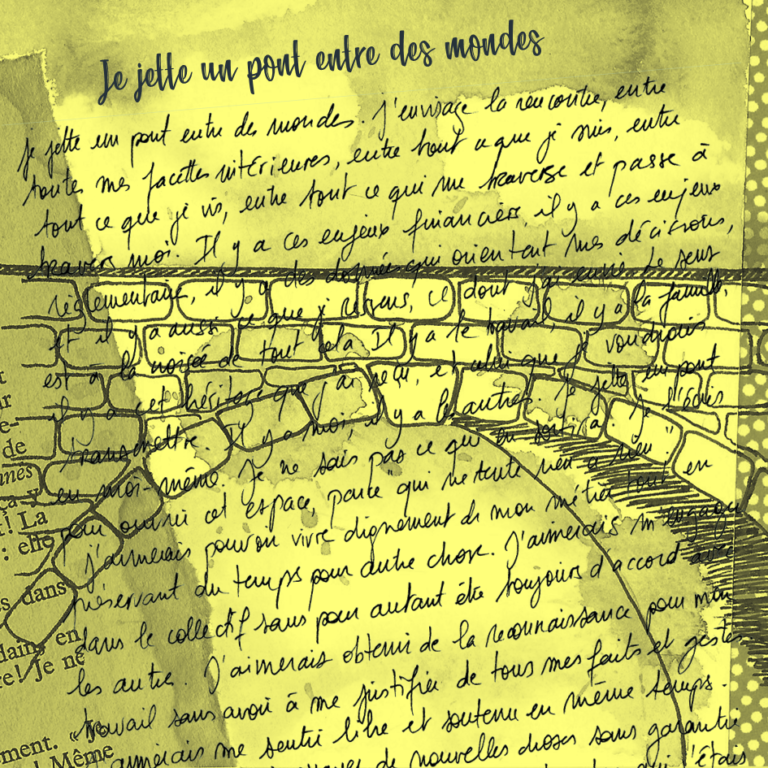 Je jette un pont entre des mondes
je jette un pont entre des mondes. J'envisage la rencontre, entre
toutes mes facettes intérieures, entre tout ce que je suis, entre
tout ce que je vis, entre tout ce qui me traverse et passe à
travers moi. Il y a ces enjeux financiers, il y a ces enjeux
réglementaire, il y a des données qui orientent mes décisions,
et il y a aussi ce que je ressens, ce dont j'ai envie. Le sens
est à la croisée de tout cela. Il y a le travail, il y a la famille,
il y a cet héritage que j'ai reçu, et celui que je voudrais
transmettre. Il y a moi, il y a les autres. Je jette un pont
en moi-même. Je ne sais pas ce qui en sortira. Je l'écris
pour ouvrir cet espace, parce "qui ne tente rien a rien".
J'aimerais pouvoir vivre dignement de mon métier tout en
préservant du temps pour autre chose. J'aimerais m'engager
dans le collectif sans pour autant être toujours d'accord avec
les autres. J'aimerais obtenir de la reconnaissance pour mon
travail sans avoir à me justifier de tous mes faits et gestes.
J'aimerais me sentir libre et soutenu en même temps.
de nouvelles choses sans garantie
qui j'étais
de
mes
ça y
! La
: elle
s dans
dans en
re! Je ne
ment. «
Même